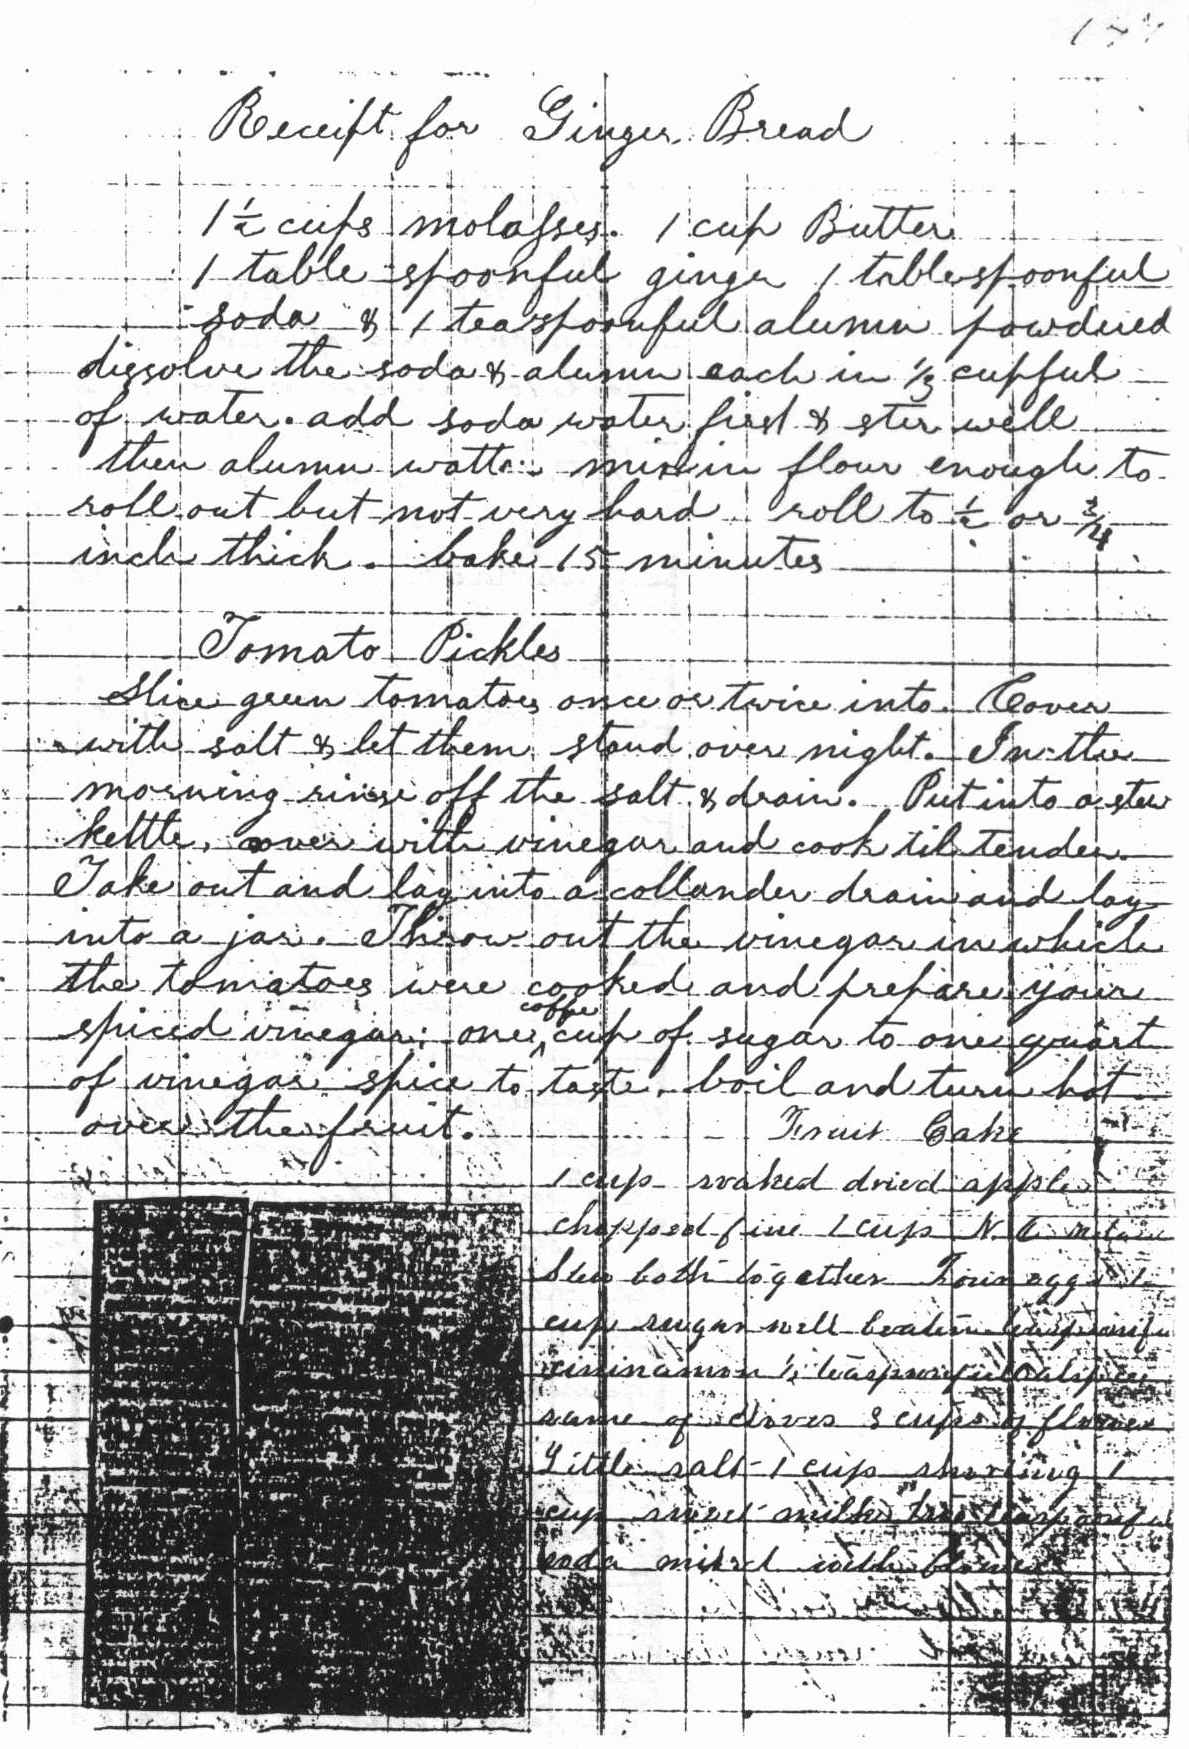 Receipt for Ginger Bread
1 1/2 cups molasses. 1 cup Butter
1 table spoonful ginger 1 tablespoonful
soda & 1 teaspoonful alumn powdered
dissolve the soda & alumn each in 1/3 cupful
of water. add soda water first & ster well
then alumn watter mix in flour enough to
roll out but not very hard roll to 1/2 or 3/4
inch thick. bake 15 minutes
Tomato Pickles
Slice green tomatoes once or twice into. Cover
with salt & let them stand over night. In the
morning rinse off the salt & drain. Put into a stew
kettle, cover with vinegar and cook til tender.
Take out and lay into a collander drain and lay
into a jar. Throw out the vinegar in which
the tomatoes were cooked and prepare your
spiced vinegar; one coffe cup of sugar to one quart
of vinegar spice to taste. boil and turn hot
over the fruit.
Fruit Cake
1 cup soaked dried apple
chopped fine 1 cup N. O.
Stew both together Four eggs 1
cup sugar well beaten teaspoonfu
cininamon 1/2 teaspoonful alspice
same of cloves 3 cups of flower
Little salt 1 cup shoring 1
cup sweet milk two teaspoonful
soda mixed with flower